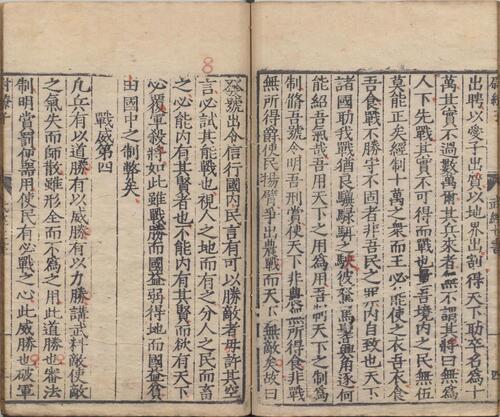 出聘以愛子出質以地界出割得天下助卒名為十
萬其實不過數萬爾其兵來者無不謂其將曰無為
人下先戰其實不可得而戰也量吾境內之民無伍
莫能正矣經制十萬之衆而王必能使之衣吾衣食
吾食戰不勝守不固者非吾民之罪內自致也天下
諸國助我戰猶良驥騄駬之駃彼駑馬鬐興角逐何
能紹吾氣哉吾用天下之用為用吾制天下之制為
制脩吾號令明吾刑賞使天下非農無所得食非戰
無所得爵使民揚臂爭出農戰而天下無敵矣故曰
8
發號出令信行國內民言有可以勝敵者毋許其空
言必試其能戰也視人之地而有之分人之民而畜
之必能內有其賢者也不能內有其賢而欲有天下
必覆軍殺將如此雖戰勝而國益弱得地而國益貧
由國中之制弊矣
戰威第四
凡兵有以道勝有以威勝有以力勝講武料敵使敵
之氣失而師散雖形全而不為之用此道勝也審法
制明賞罰便器用使民有必戰之心此威勝也破軍